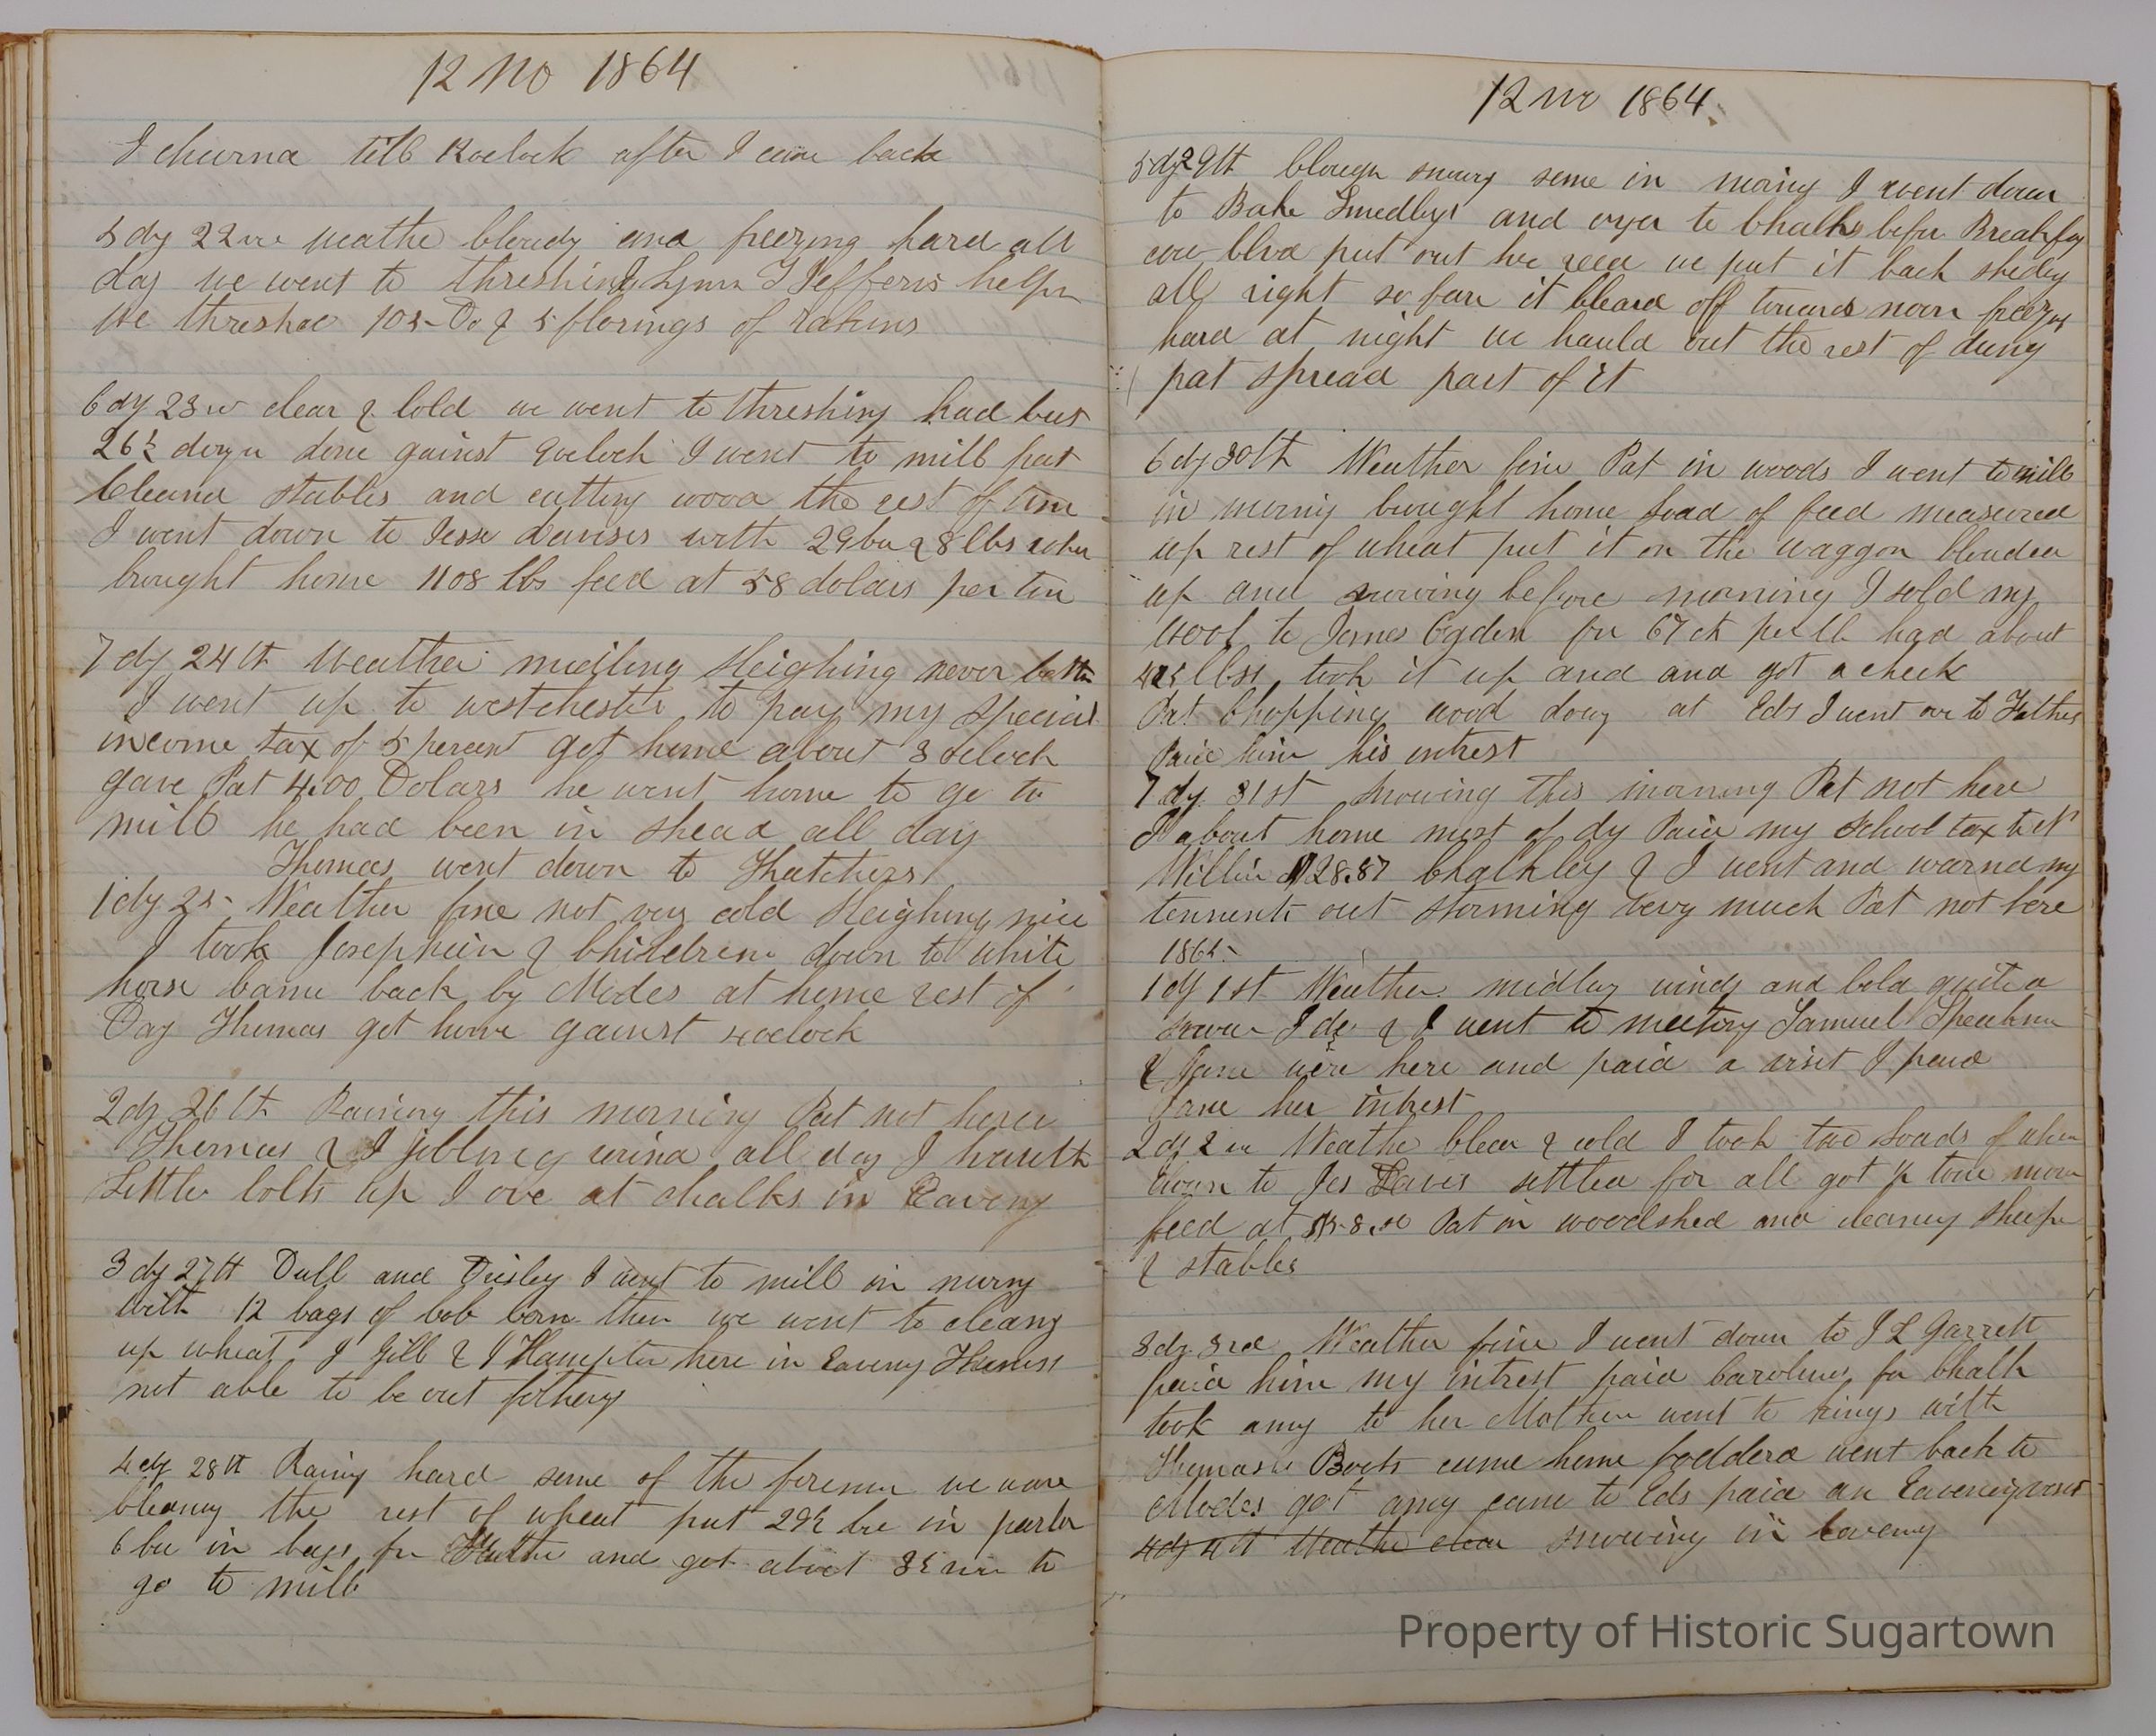 12 mo 1864
I churnd till 12oclock after I came back
5 dy 22nd weathe Cloudy and freezing hard all
day we went to threshing Lynn I Jefferis helpn
We threshed 105 Do & 5 florings of rakins
6 dy 23rd clear & Cold we went to threshing had but
26½ dozn done gainst 9oclock I went to mill pat
Cleand stables and cutting wood the rest of time
I went down to Jesse Davises with 29bu & 8lbs whe
brought home 1108 lbs feed at 58 dolars per ton
7 dy 24th Weather midling Sleighing never bettr
I went up to westchester to pay my Special
income tax of 5 percent got home about 3 oclock
gave Pat 4.00 Dolars he went home to go to
mill he had been in shead all day
Thomas went down to Thatchers
1 dy 25 Weather fine not very cold Sleighing nice
I took Josephein & Children down to white
horse Came back by Modes at home rest of
Day Thomas got home gainst 4oclock
2 dy 26th Raining this morning Pat not here
Thomas & I jobbing arind all day I
Little Colts up I ove at chalks in Eaveng
3 dy 27th Dull and Drisley I went to mill in morng
with 12 bags of Cob Corn then we went to cleang
up wheat J Gill & J Hampton here in Eaveng Thomas
not able to be out
4 dy 28th Rainy hard some of the forenun we ware
Cleaning the rest of wheat put 29½ bu in parlor
6 bu in bags for and got about 35 more to
go to mill
12 mo 1864
5 dy 29th Clough snowy some in morning I went down
to Bake Smedleys and over to Chalks befor Breakfas
cow Clvd put out her reed we put it back
all right so fare it Cleard off towards noon freezng
hard at night we hauld out the rest of dung
pat spread part of it
6 dy 30th Weather fine Pat in woods I went to mill
in morning brought home load of feed measured
up rest of wheat put it on the waggon Clouded
up and snowing before morning I sold my
wool to James Ogden for 67 cts per lb had about
425 lbs took it up and and got a check
Pat Chopping wood down at Eds I went ove to Fathers
Paid him his intrest
7 dy 31st Snowing this morning Pat not here
I about home most of dy Paid my School tax to
Willim $28.87 Chalkley & I went and warnd my
tennents out Storming very much Pat not here
1865
1 dy 1st Weather midling windy and Cold quite a
snow I & I went to meeting Samuel Speakmn
& Jane were here and paid a visit I paid
Jane her intrest
2 dy 2nd Weathe Clear & cold I took two Loads of when
down to Jes Davis settled for all got ½ tone more
feed at $58.50 Pat in woodshed and cleaning sheep
& stables
3 dy 3rd Weather fine I went down to J L Garrett
paid him my intrest paid Carolines for Chalk
took amy to her Mother went to kings with
Thomases Boots came home foddera went back to
Modes got amy came to Eds paid an Eavening visit
4 dy 4th Weathe clear snowing in Eaveng
Property of Historic Sugartown